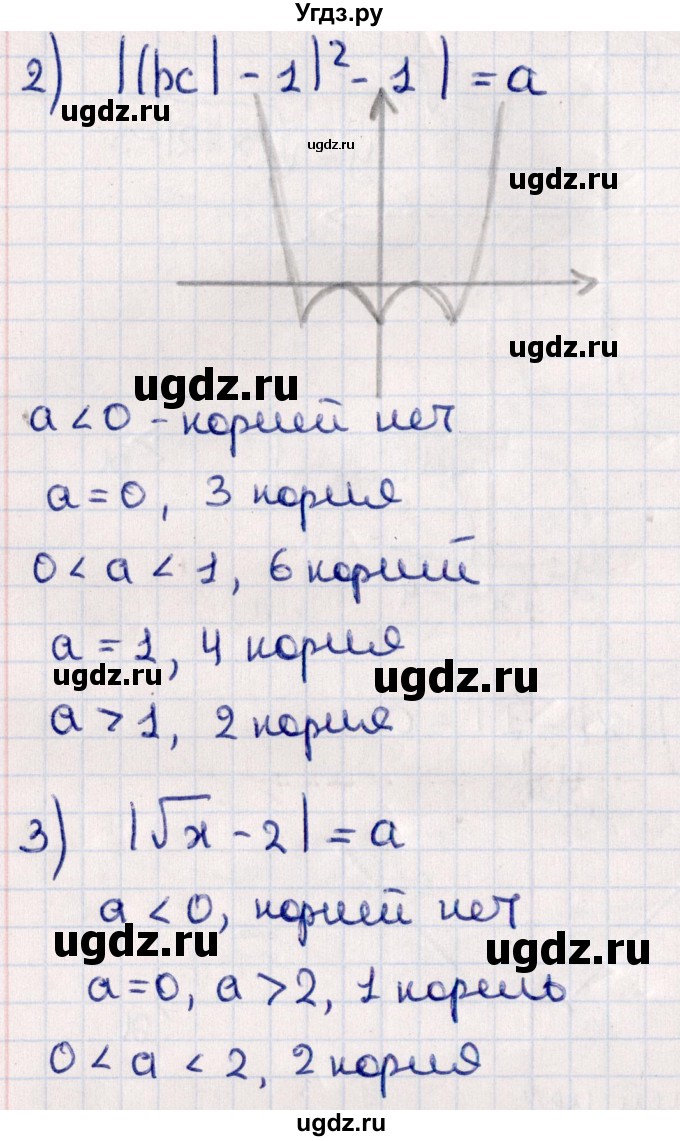 Угдз.ру
2) |(|x| - 1)² - 1| = a
ugdz.ru
ugdz.ru
ugdz.ru
ugdz.ru
ugdz.ru
a < 0 - корней нет
a = 0, 3 корня
0 < a < 1, 6 корней
a = 1, 4 корня
ugdz.ru
ugdz.ru
a > 1, 2 корня
3) |√x - 2| = a
a < 0, корней нет
ugdz.ru
ugdz.ru
a = 0, a > 2, 1 корень
0 < a < 2, 2 корня
ugdz.ru